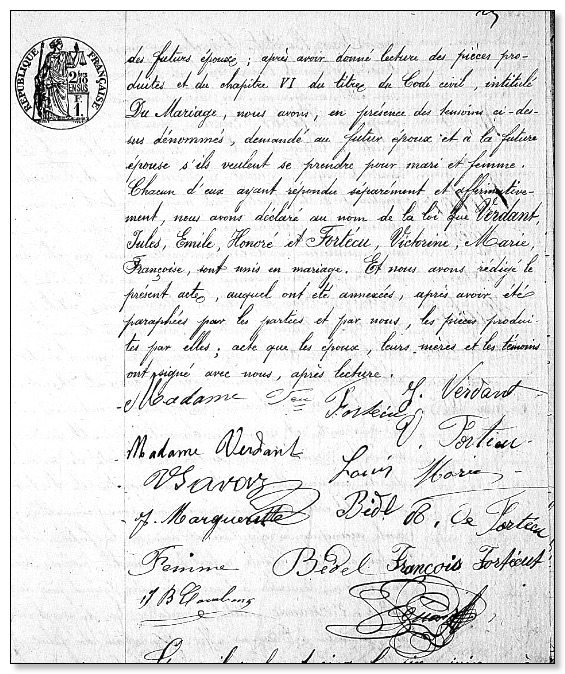 RÉPUBLIQUE FRANÇAISE
des futurs époux ; après avoir donné lecture des pièces pro-
duites et du chapitre VI du titre du Code civil, intitulé
Du Mariage, nous avons, en présence des témoins ci-des-
sus dénommés, demandé au futur époux et à la future
épouse s'ils veulent se prendre pour mari et femme.
Chacun d'eux ayant répondu séparément et affirmative-
ment, nous avons déclaré au nom de la loi que Verdant,
Jules, Emile, Honoré et Fortécu, Victorine, Marie,
Françoise, sont unis en mariage. Et nous avons rédigé le
présent acte, auquel ont été annexées, après avoir été
paraphées par les parties et par nous, les pièces produi-
tes par elles ; acte que les époux, leurs mères et les témoins
ont signé avec nous, après lecture.
Madame Fortécu J. Verdant
Madame Verdant Fortécu
Louis Marie
J. Marguerite Bédel B. de Fortécu
Femme Bédel François Fortécu